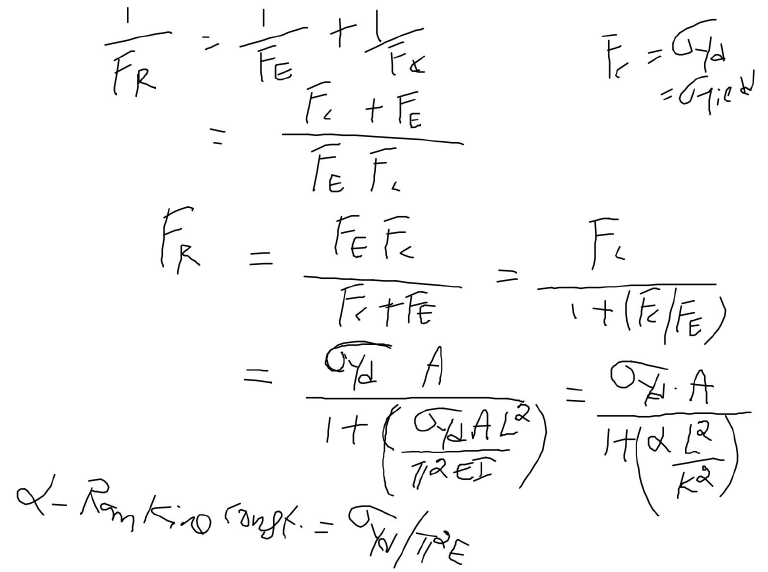 1/F_R = 1/F_E + 1/F_c
F_c = σyd
= σyield
= (F_c + F_E)/(F_E F_c)
F_R = (F_E F_c)/(F_c + F_E) = F_c/(1 + (F_c/F_E))
= (σyd A)/(1 + (σyd A L²/π² E I)) = (σyd · A)/(1 + (α L²/k²))
α - Rankine const. = σyd/π²E